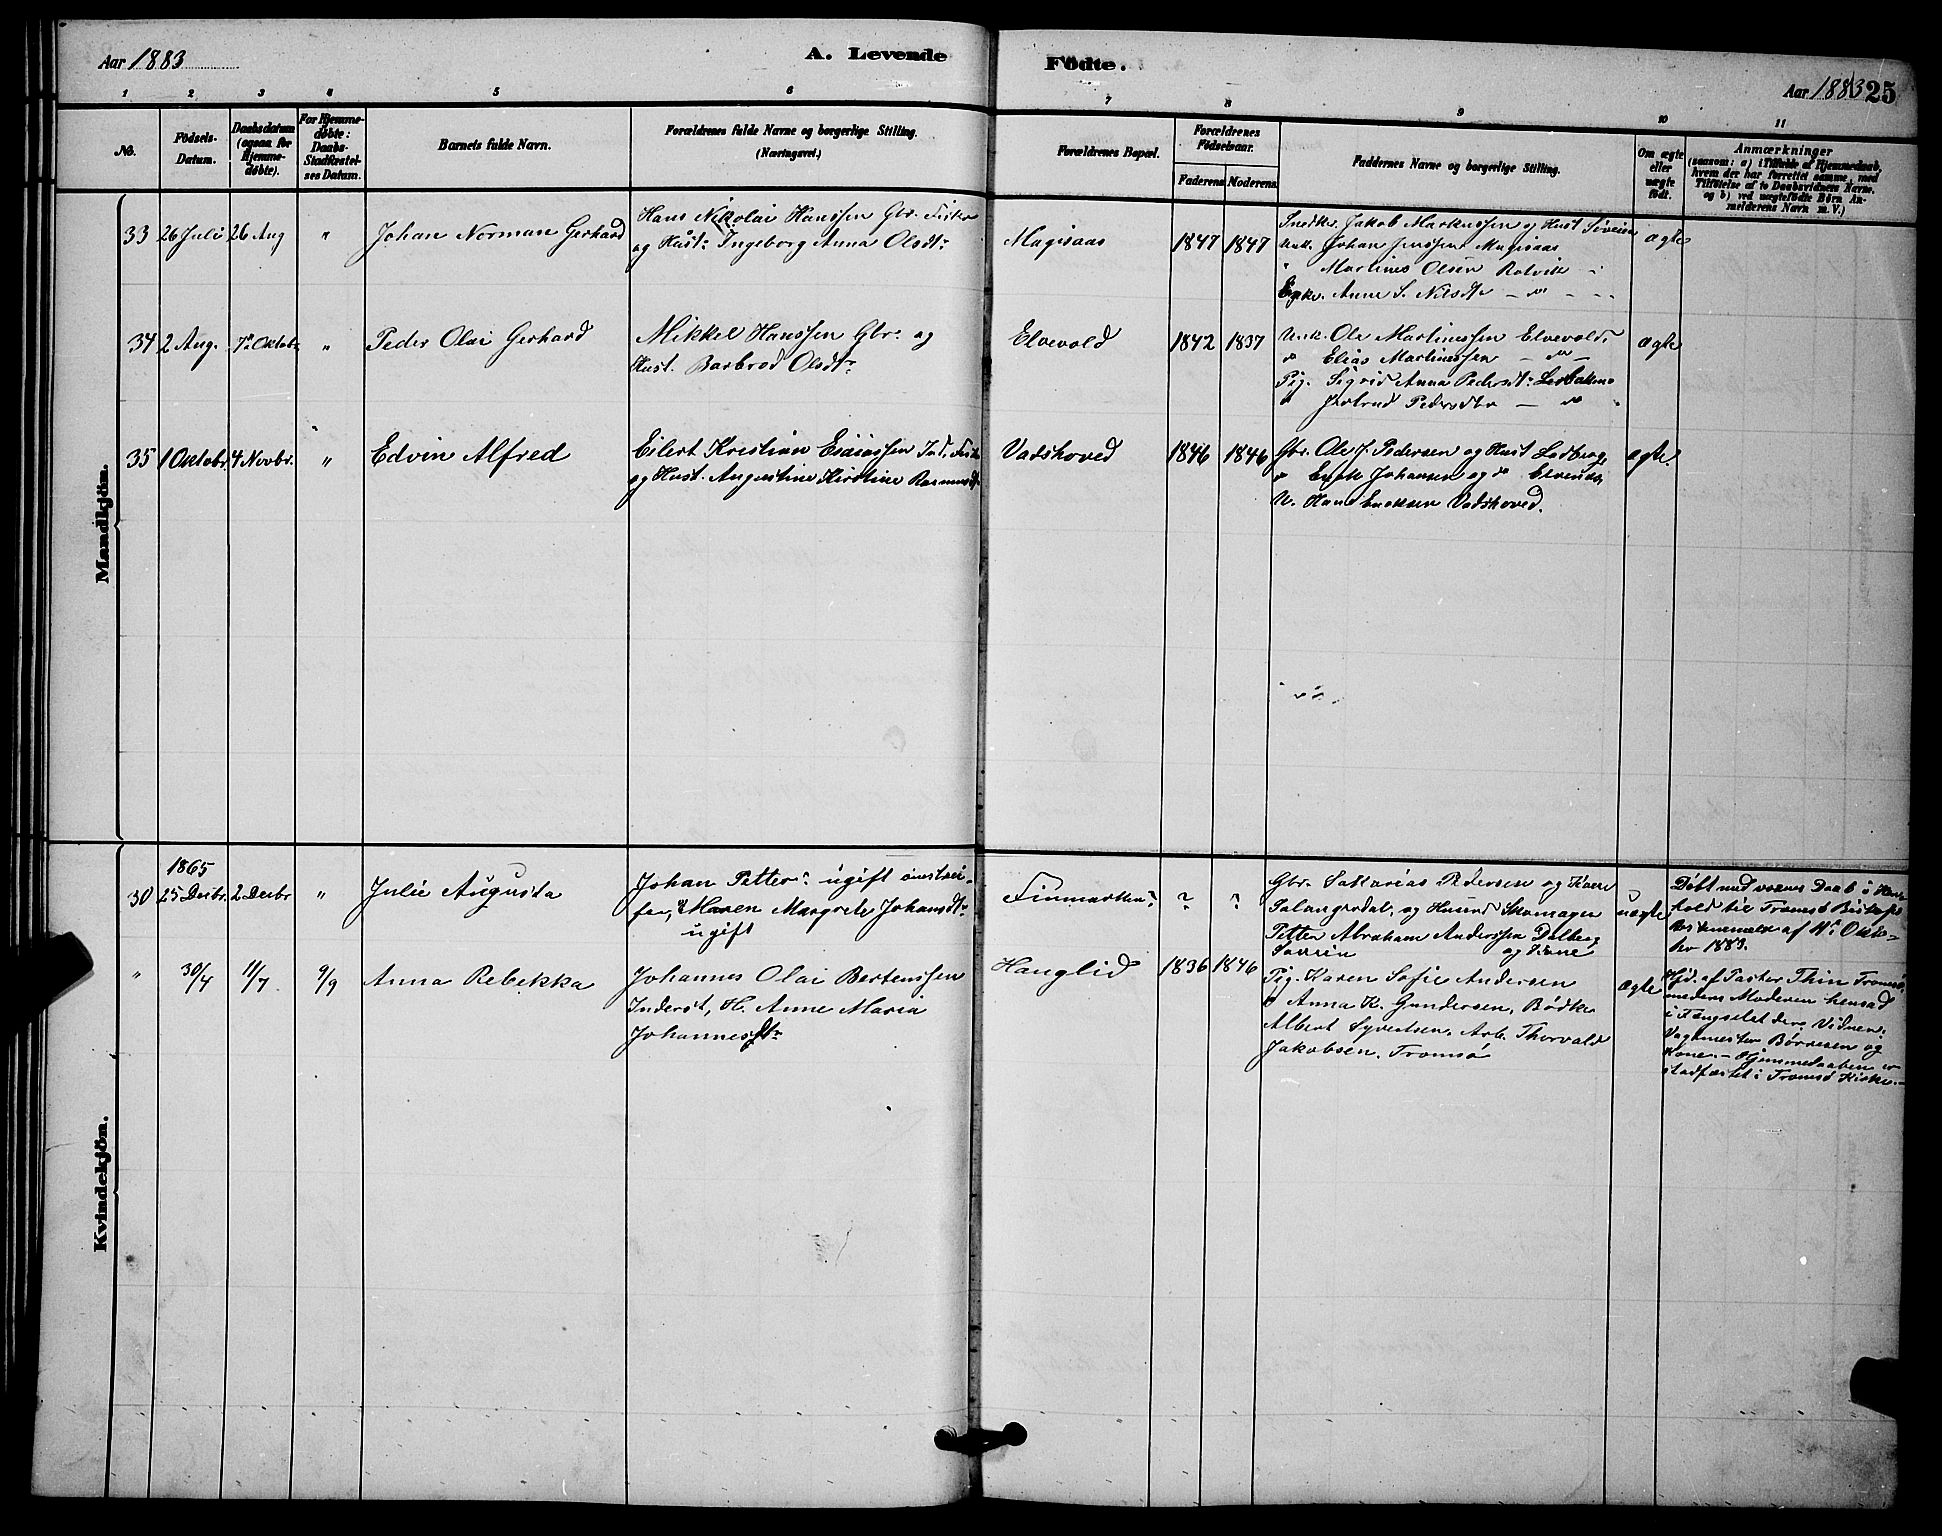 Aar 1883
A. Levende
Födte.
Aar 1883 25
1 2 3 4 5 6 7 8 9 10 11
No.
Födsels-Datum.
Daabsdatum (ogsaa for Hjemme-döbte).
For Hjemme-döbte: Daabs-Stadfæstel-ses Datum.
Barnets fulde Navn.
Forældrenes fulde Navne og borgerlige Stilling. (Næringsvei.)
Forældrenes Bopæl.
Forældrenes Födselsaar.
Faderens Moderens
Faddernes Navne og borgerlige Stilling.
Om ægte eller uægte födt.
Anmærkninger
(saasom: a) i Tilfælde af Hjemmedaab,
hvem der har forrettet samme, med
Tilföielse af to Daabsvidners Navne.
og b) ved uægtefödte Börn An-
melderens Navn m. V.)
Mandkjön.
33 26 Juli 26 Aug " Johan Norman Gerhard
Hans Nikolai Hanssen Gbr. Fisker
og Hust: Ingeborg Anna Olsdt:
Magisaas 1847 1847
Snedker Jakob Markussen og Hust
Johan Jenssen Magisaas
" Martines Olsen
Anne S. Nilsdtr — " —
ægte
34 2 Aug. 7de Oktob. " Peder Olai Gerhard
Mikkel Hanssen Gbr. og
Hust. Barbrod Olsdt:
Elvevold 1842 1837
Unk. Ole Martinussen Elvevold.
" Elias Martinussen — " —
Pig. Sigrid Anna Pedersdt:
" Pedersdtr — " "
ægte
35 1 Oktobr. 4 Novbr. " Edvin Alfred
Eilert Kristian Esaiassen Ind. Fisker
og Hust. Augustine Kirstine
Vadshoved 1846 1846
Gbr. Ole J. Pedersen og Hust
" Johansen og do
U. Hans Enoksen Vadshoved.
ægte.
Kvindekjön.
1865
30 25 Decbr. 2 Decbr " Julie Augusta
Johan Petter: ugift
Maren Margrete Johansdt:
ugift
Finmarken? ? ?
Gbr. Sakarias Pedersen og Kone
Salangsdal, og Skomager
Petter Abraham Anderssen Dalberg
og Kone
uægte
Döbt ved voxnes Daab i Hen-
hold til Tromsö Bispe
af 11te Okto-
ber 1883.
" 30/4 11/7 9/9 Anna Rebekka
Johannes Olai Berteussen
Inderst, H. Anne Maria
Johannesdt:
Hanglid 1836 1846
Pig. Karen Sofie Andersen
" Anna K. Gundersen, Bödker
Albert Syvertsen, Arb. Thorvald
Jakobsen, Tromsö
ægte
Hjd. af Pastor Thin Tromsö,
medens Moderen hensad
i Fængselet der. Vidner:
Vagtmester Börresen og
Kone. — Hjemmedaaben er
stadfæstet i Tromsö Kirke. —